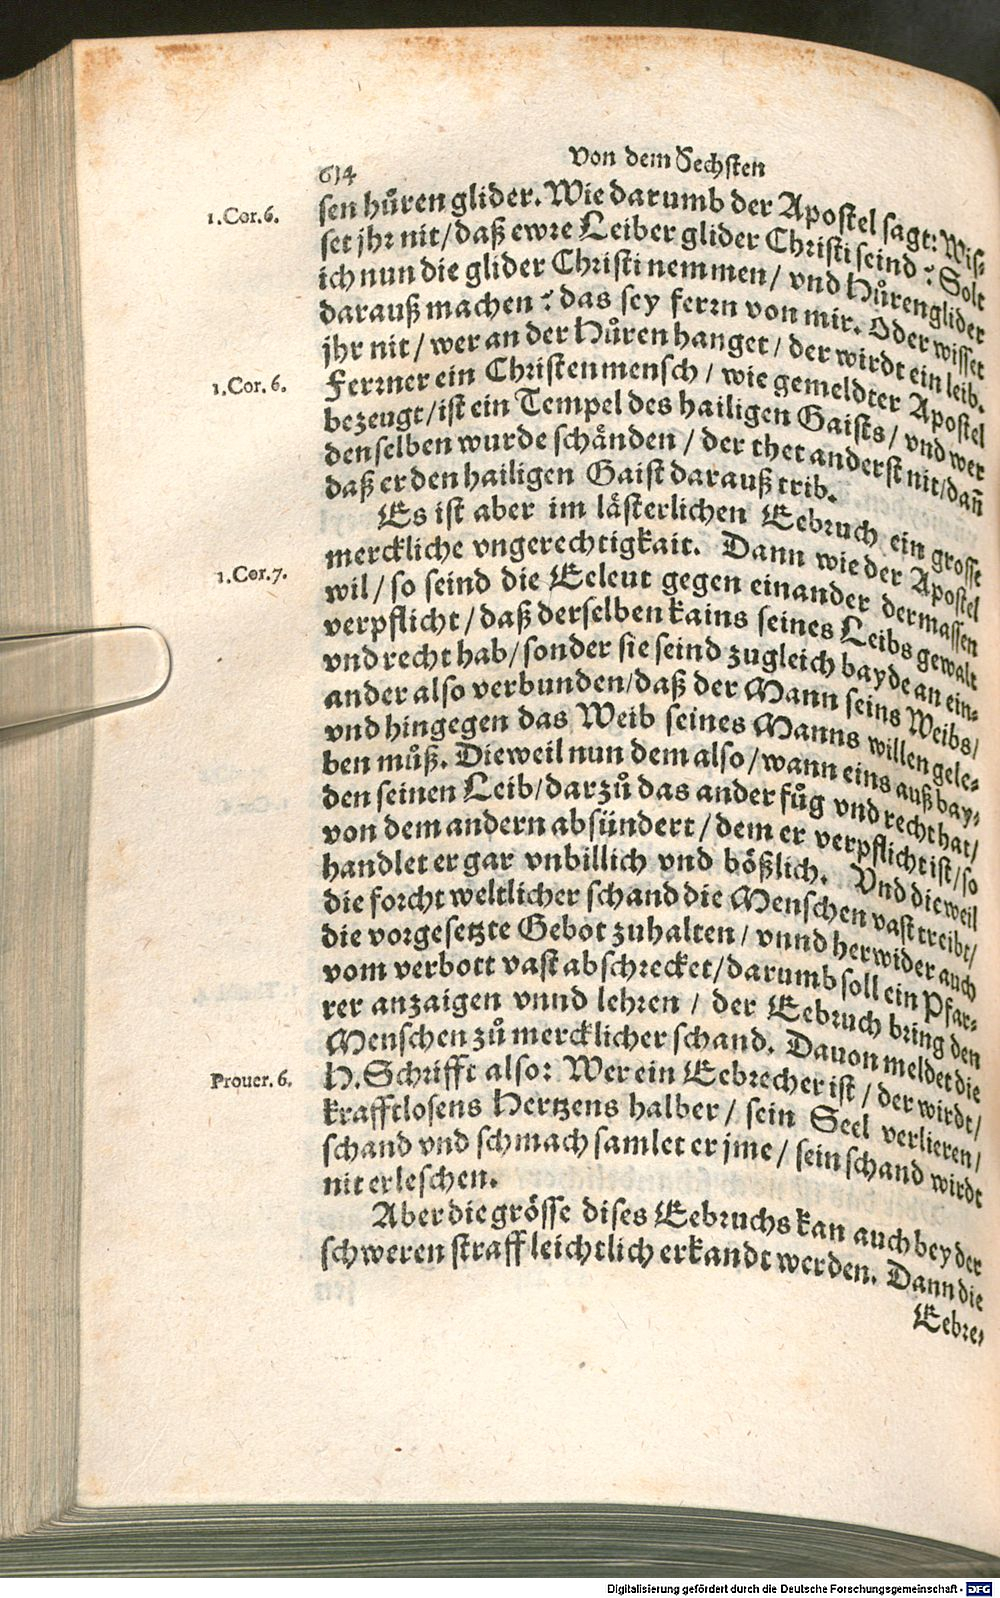 614
Von dem Sechsten
1.Cor.6.
sen hůren glider. Wie darumb der Apostel sagt: Wis-
set jhr nit/ daß ewre Leiber glider Christi seind? Solt
ich nun die glider Christi nemmen/ vnd Hůrenglider
darauß machen? das sey ferrn von mir. Oder wisset
jhr nit/ wer an der Hůren hanget/ der wirdt ein leib.
1.Cor. 6.
Ferrner ein Christenmensch/ wie gemeldter Apostel
bezeugt/ ist ein Tempel des hailigen Gaists/ vnd wer
denselben wurde schänden/ der thet anderst nit/ dañ
daß er den hailigen Gaist darauß trib.
Es ist aber im lästerlichen Eebruch ein grosse
merckliche vngerechtigkait. Dann wie der Apostel
1.Cor.7.
wil/ so seind die Eeleut gegen einander dermassen
verpflicht/ daß derselben kains seines Leibs gewalt
vnd recht hab/ sonder sie seind zugleich bayde an ein-
ander also verbunden/ daß der Mann seins Weibs/
vnd hingegen das Weib seines Manns willen gele-
ben můß. Dieweil nun dem also/ wann eins auß bay-
den seinen Leib/ darzů das ander fůg vnd recht hat/
von dem andern absündert/ dem er verpflicht ist/ so
handlet er gar vnbillich vnd bößlich. Vnd dieweil
die forcht weltlicher schand die Menschen vast treibt/
die vorgesetzte Gebot zuhalten/ vnnd herwider auch
vom verbott vast abschrecket/ darumb soll ein Pfar-
rer anzaigen vnnd lehren/ der Eebruch bring den
Menschen zů mercklicher schand. Dauon meldet die
Prouer. 6.
H. Schrifft also: Wer ein Eebrecher ist/ der wirdt/
krafftlosens Hertzens halber/ sein Seel verlieren/
schand vnd schmach samlet er jme/ sein schand wirdt
nit erleschen.
Aber die grösse dises Eebruchs kan auch bey der
schweren straff leichtlich erkandt werden. Dann die
Eebre-
Digitalisierung gefördert durch die Deutsche Forschungsgemeinschaft - DFG